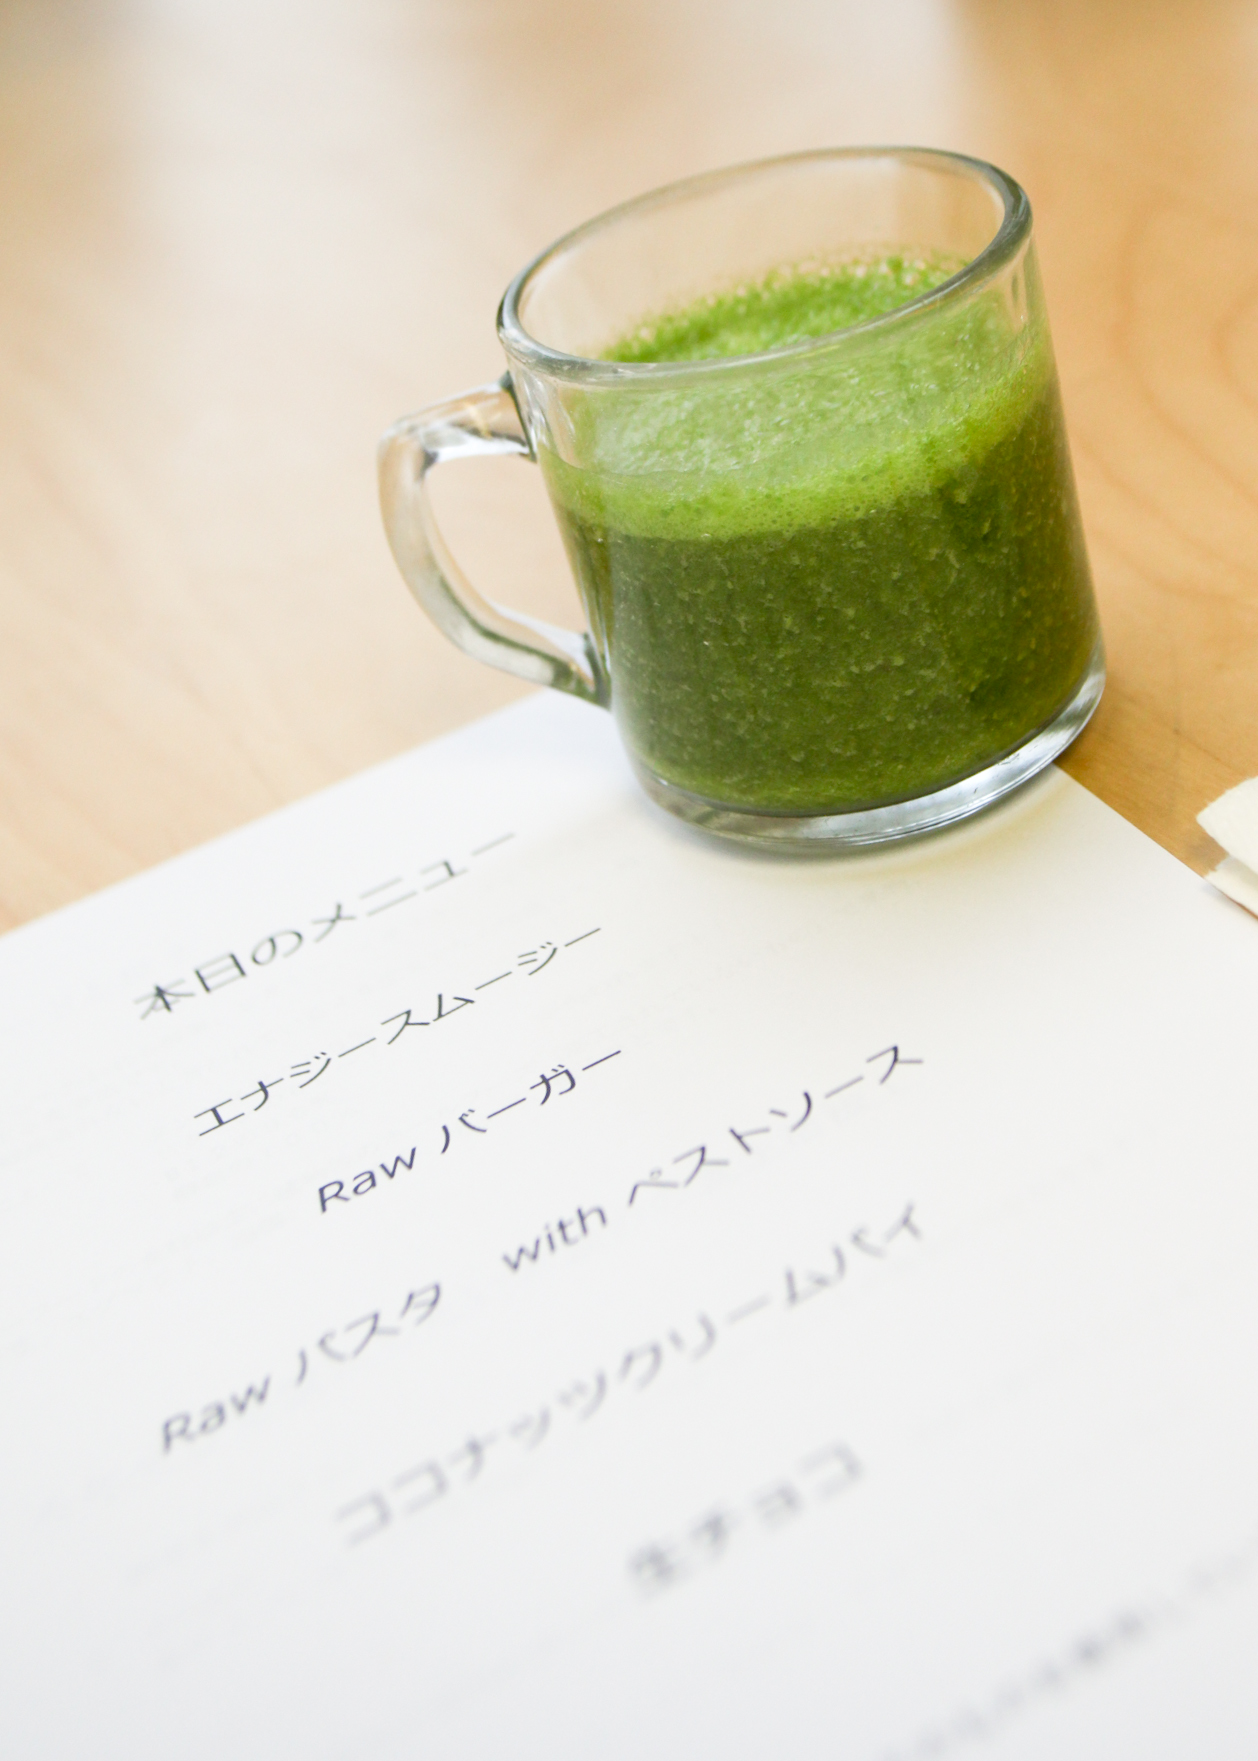 本日のメニュー
エナジースムージー
Raw バーガー
Raw パスタ　with ペストソース
ココナッツクリームパイ
生チョコ